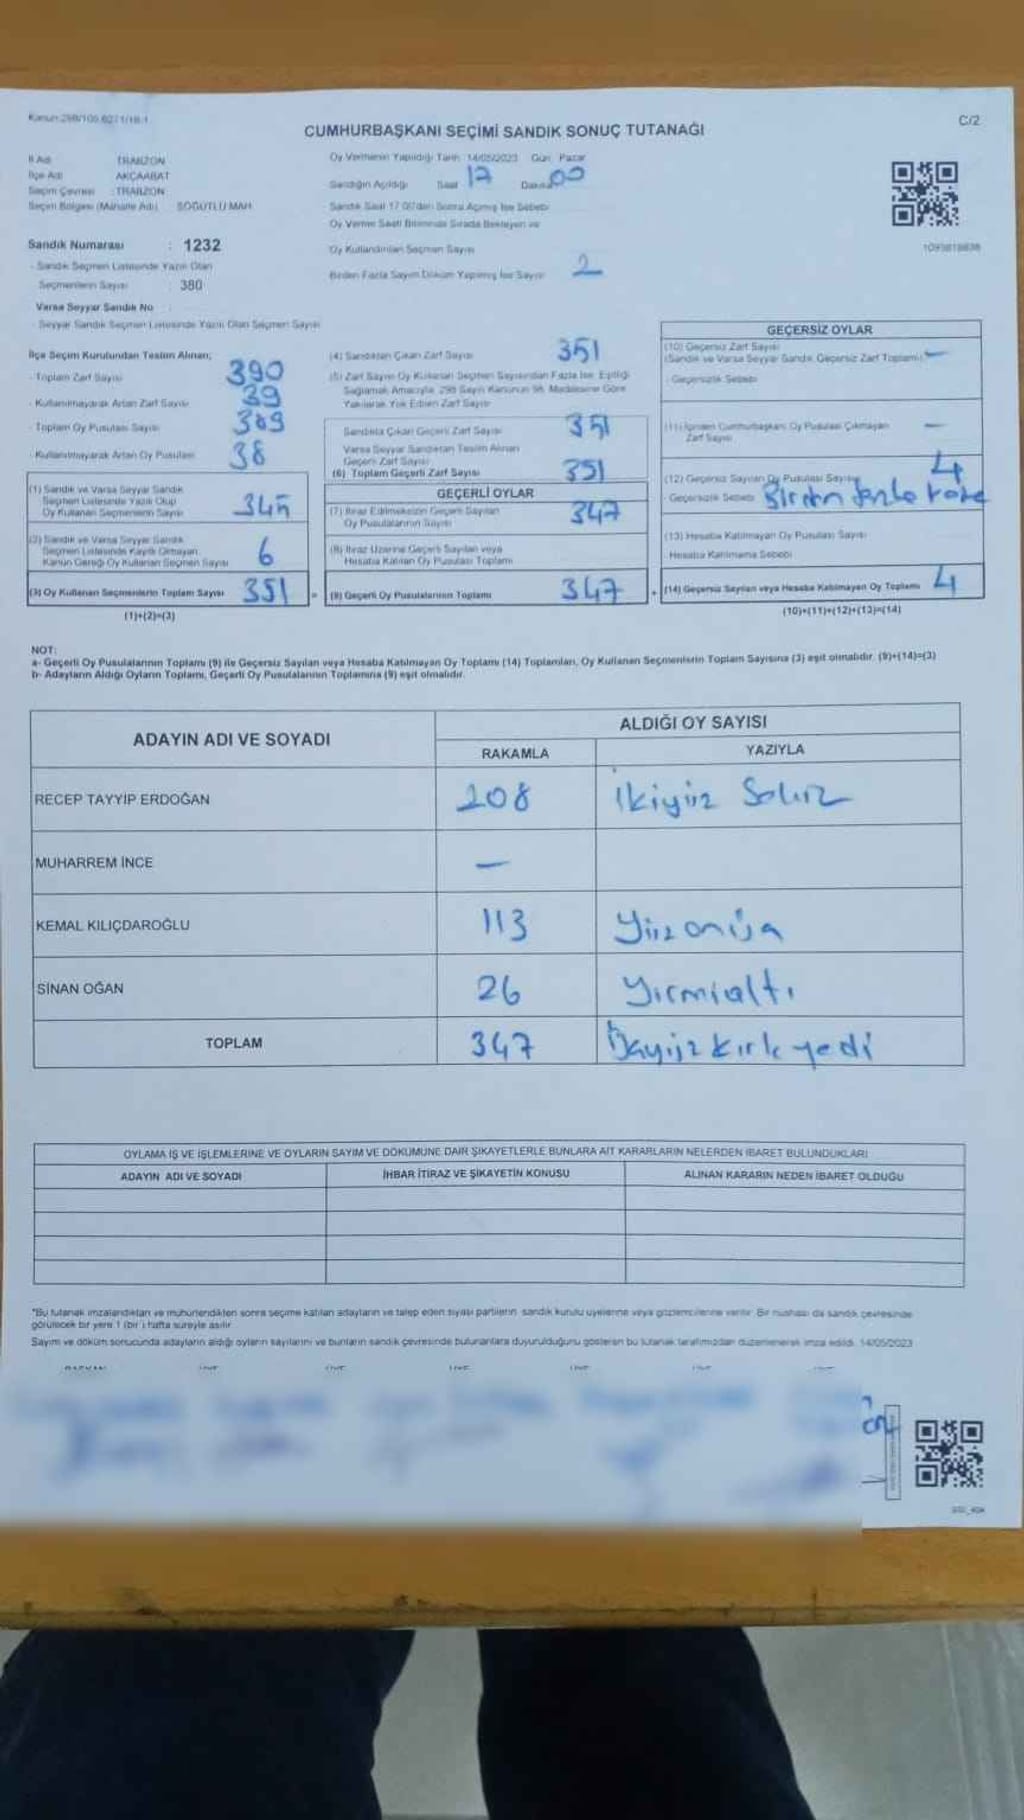 Kanun:298/105
C/2
CUMHURBAŞKANI SEÇİMİ SANDIK SONUÇ TUTANAĞI
İl Adı TRABZON
İlçe Adı AKÇAABAT
Seçim Çevresi : TRABZON
Seçim Bölgesi (Mahalle Adı) SÖĞÜTLÜ MAH.
Sandık Numarası : 1232
- Sandık Seçmen Listesinde Yazılı Olan
Seçmenlerin Sayısı : 380
Varsa Seyyar Sandık No
- Seyyar Sandık Seçmen Listesinde Yazılı Olan Seçmen Sayısı
Oy Vermenin Yapıldığı Tarih 14/05/2023 Gün Pazar
Sandığın Açıldığı Saat 17 Dakika 00
- Sandık Saat 17.00'den Sonra Açılmış İse Sebebi
Oy Verme Saati Bitiminde Sırada Bekleyen ve
Oy Kullandırılan Seçmen Sayısı
Birden Fazla Sayım Döküm Yapılmış İse Sayısı 2
İlçe Seçim Kurulundan Teslim Alınan;
- Toplam Zarf Sayısı 390
- Kullanılmayarak Artan Zarf Sayısı 39
- Toplam Oy Pusulası Sayısı 389
- Kullanılmayarak Artan Oy Pusulası 38
(1) Sandık ve Varsa Seyyar Sandık
Seçmen Listesinde Yazılı Olup
Oy Kullanan Seçmenlerin Sayısı 345
(2) Sandık ve Varsa Seyyar Sandık
Seçmen Listesinde Kayıtlı Olmayan
Kanun Gereği Oy Kullanan Seçmen Sayısı 6
(3) Oy Kullanan Seçmenlerin Toplam Sayısı 351
(1)+(2)=(3)
(4) Sandıktan Çıkan Zarf Sayısı 351
(5) Zarf Sayısı Oy Kullanan Seçmen Sayısından Fazla İse; Eşitliği
Sağlamak Amacıyla, 298 Sayılı Kanunun 98. Maddesine Göre
Yakılarak Yok Edilen Zarf Sayısı
Sandıkta Çıkan Geçerli Zarf Sayısı 351
Varsa Seyyar Sandıktan Teslim Alınan
Geçerli Zarf Sayısı
(6) Toplam Geçerli Zarf Sayısı 351
GEÇERLİ OYLAR
(7) İtiraz Edilmeksizin Geçerli Sayılan
Oy Pusulalarının Sayısı 347
(8) İtiraz Üzerine Geçerli Sayılan veya
Hesaba Katılan Oy Pusulası Toplamı
= (9) Geçerli Oy Pusulalarının Toplamı 347
GEÇERSİZ OYLAR
(10) Geçersiz Zarf Sayısı
(Sandık ve Varsa Seyyar Sandık Geçersiz Zarf Toplamı) -
- Geçersizlik Sebebi
(11) İçinden Cumhurbaşkanı Oy Pusulası Çıkmayan
Zarf Sayısı -
(12) Geçersiz Sayılan Oy Pusulası Sayısı 4
- Geçersizlik Sebebi Birden fazla
(13) Hesaba Katılmayan Oy Pusulası Sayısı
Hesaba Katılmama Sebebi
+ (14) Geçersiz Sayılan veya Hesaba Katılmayan Oy Toplamı 4
(10)+(11)+(12)+(13)=(14)
NOT:
a- Geçerli Oy Pusulalarının Toplamı (9) ile Geçersiz Sayılan veya Hesaba Katılmayan Oy Toplamı (14) Toplamları, Oy Kullanan Seçmenlerin Toplam Sayısına (3) eşit olmalıdır. (9)+(14)=(3)
b- Adayların Aldığı Oyların Toplamı, Geçerli Oy Pusulalarının Toplamına (9) eşit olmalıdır.
ADAYIN ADI VE SOYADI
ALDIĞI OY SAYISI
RAKAMLA YAZIYLA
RECEP TAYYİP ERDOĞAN 208 İkiyüz Sekiz
MUHARREM İNCE -
KEMAL KILIÇDAROĞLU 113 Yüzonüç
SİNAN OĞAN 26 Yirmialtı
TOPLAM 347 Üçyüzkırkyedi
OYLAMA İŞ VE İŞLEMLERİNE VE OYLARIN SAYIM VE DÖKÜMÜNE DAİR ŞİKAYETLERLE BUNLARA AİT KARARLARIN NELERDEN İBARET BULUNDUKLARI
ADAYIN ADI VE SOYADI İHBAR İTİRAZ VE ŞİKAYETİN KONUSU ALINAN KARARIN NEDEN İBARET OLDUĞU
*Bu tutanak imzalandıktan ve mühürlendikten sonra seçime katılan adayların ve talep eden siyasi partilerin sandık kurulu üyelerine veya gözlemcilerine verilir. Bir nüshası da sandık çevresinde
görülecek bir yere 1 (bir) hafta süreyle asılır.
Sayım ve döküm sonucunda adayların aldığı oyların sayılarını ve bunların sandık çevresinde bulunanlara duyurulduğunu gösteren bu tutanak tarafımızdan düzenlenerek imza edildi. 14/05/2023